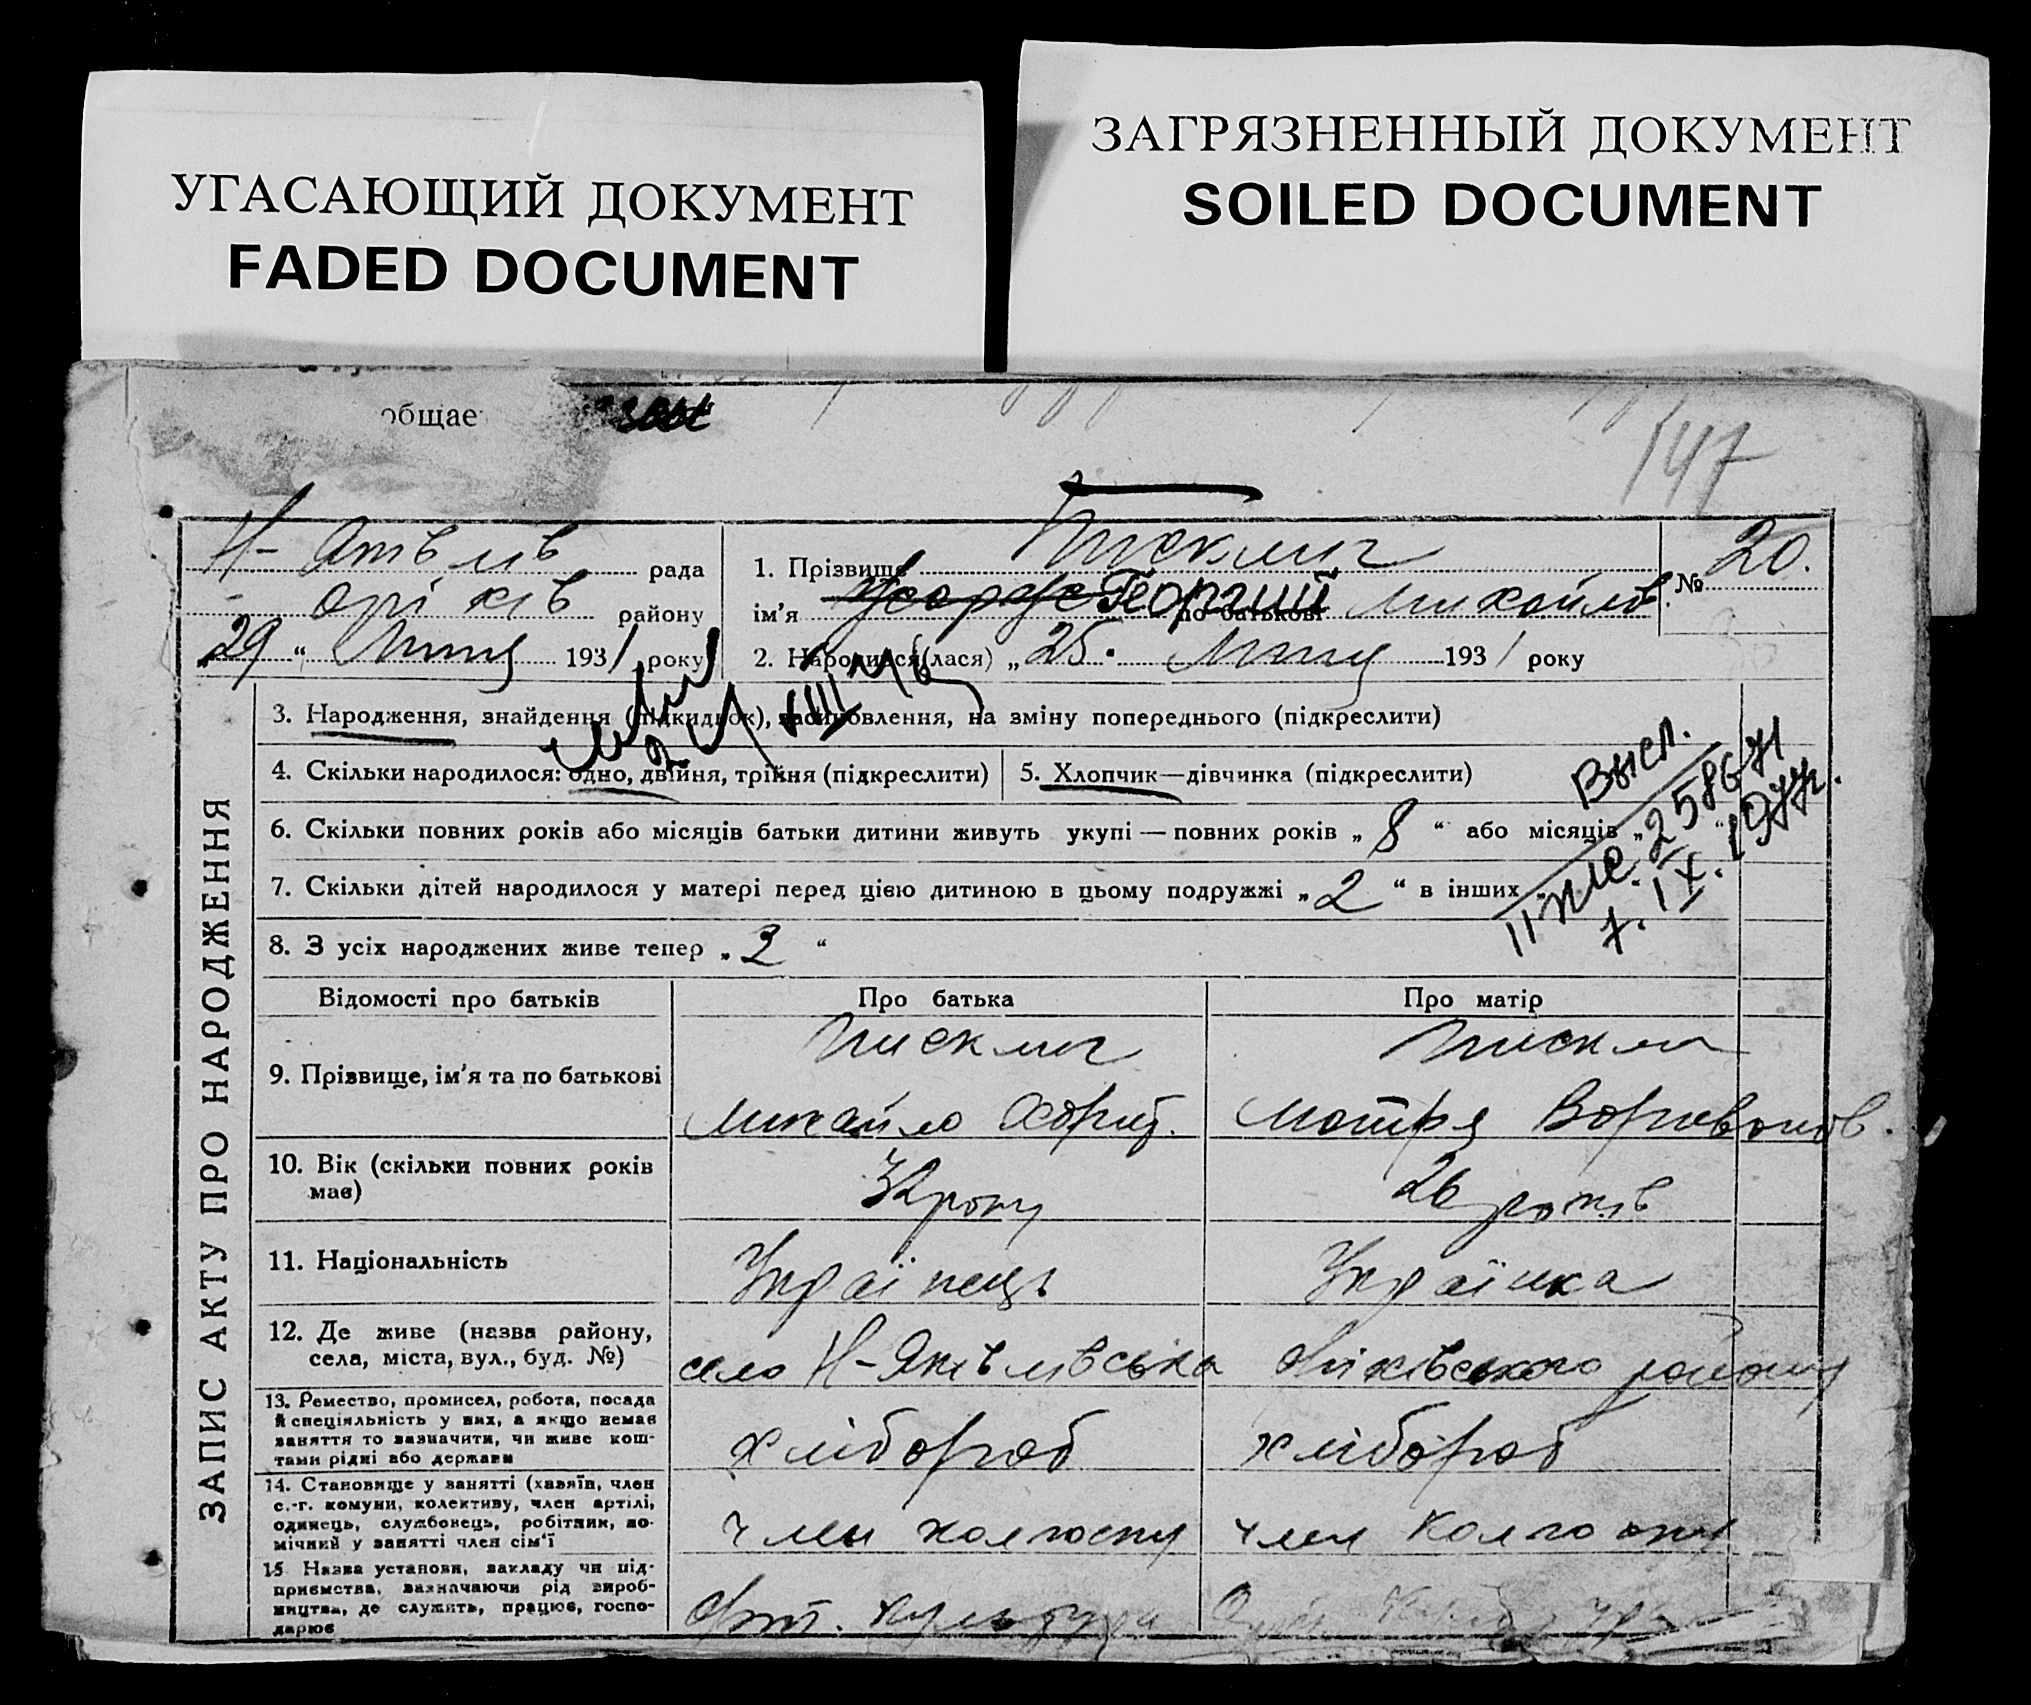 УГАСАЮЩИЙ ДОКУМЕНТ
FADED DOCUMENT
ЗАГРЯЗНЕННЫЙ ДОКУМЕНТ
SOILED DOCUMENT
общае
147
рада
району
29 " Липня 1931 року
1. Прізвище
ім'я Георгий по батькові Михайлов.
№ 20.
2. Народився(лася) „ 25. Липня 1931 року
ЗАПИС АКТУ ПРО НАРОДЖЕННЯ
3. Народження, знайдення (підкидьок), усиновлення, на зміну попереднього (підкреслити)
4. Скільки народилося: одно, двійня, трійня (підкреслити)
5. Хлопчик—дівчинка (підкреслити)
Высл.
258671
7. IX. 1977г.
6. Скільки повних років або місяців батьки дитини живуть укупі — повних років „ 8 “ або місяців „ “
7. Скільки дітей народилося у матері перед цією дитиною в цьому подружжі „ 2 “ в інших
8. З усіх народжених живе тепер „ 2 “
Відомості про батьків Про батька Про матір
9. Прізвище, ім'я та по батькові
Михайло Мотря
10. Вік (скільки повних років має) 32 року 26 років
11. Національність Українець Українка
12. Де живе (назва району, села, міста, вул., буд. №)
село Н-Яківлівська Оріхівського району
13. Ремество, промисел, робота, посада
й спеціяльність у них, а якщо немає
заняття то зазначити, чи живе кош-
тами рідні або держави
хлібороб хлібороб
14. Становище у занятті (хазяїн, член
с.-г. комуни, колективу, член артілі,
одинець, службовець, робітник, по-
мічний у занятті член сім'ї
член колгоспу член колгоспу
15 Назва установи, закладу чи під-
приємства, зазначаючи рід вироб-
ництва, де служить, працює, госпо-
дарює